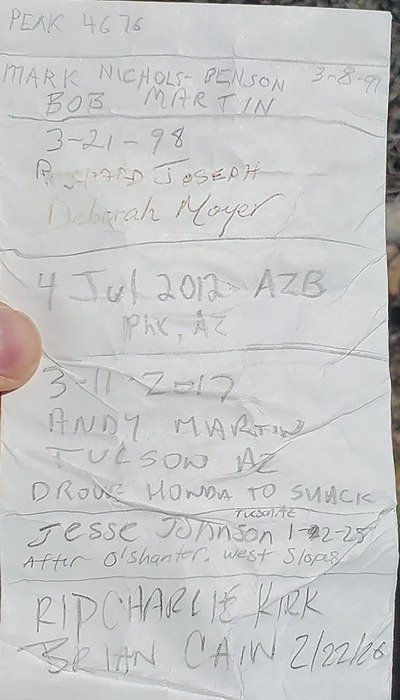 PEAK 4676
MARK NICHOLS-BENSON 3-8-97
BOB MARTIN
3-21-98
RICHARD JOSEPH
Deborah Moyer
4 Jul 2012 AZB
PHX, AZ
3-11-2017
ANDY MARTIN
TUCSON AZ
DROVE HONDA TO SHACK
Tucson AZ
Jesse Johnson
After O'shanter. West Slopes
RIP CHARLIE KIRK
BRIAN CAIN 2/22/26